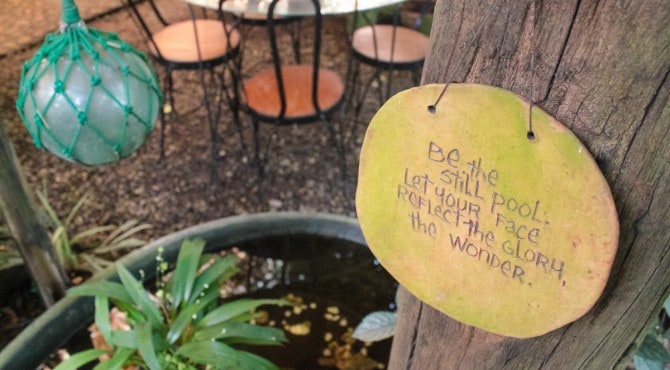 Be the
still pool.
Let your face
Reflect the Glory,
the Wonder.